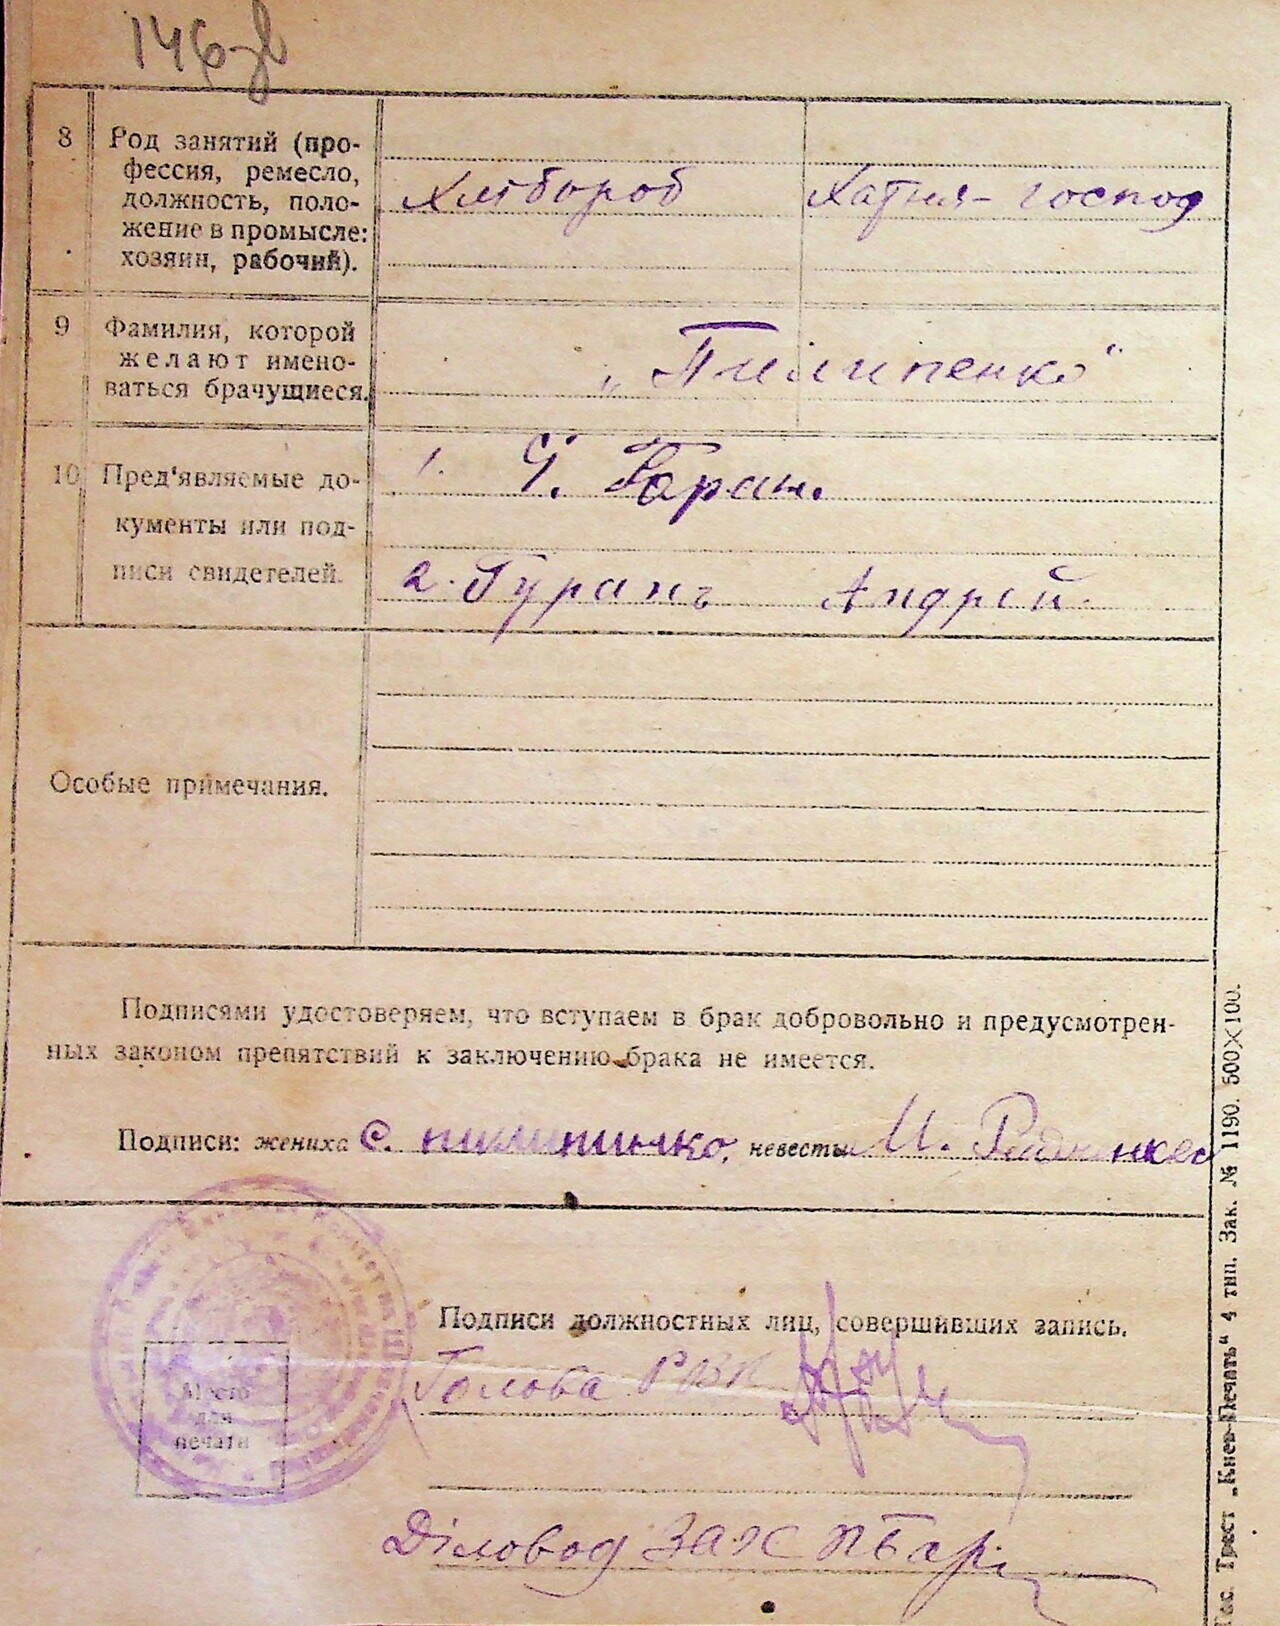 146 зв
8 Род занятий (про-
фессия, ремесло,
должность, поло-
жение в промысле:
хозяин, рабочий).
Хлібороб Хатня- господ
9 Фамилия, которой
желают имено-
ваться брачущиеся.
„Пилипенко“
10 Пред'являемые до-
кументы или под-
писи свидетелей.
1.
2. Гурань Андрей.
Особые примечания.
Подписями удостоверяем, что вступаем в брак добровольно и предусмотрен-
ных законом препятствий к заключению брака не имеется.
Подписи: жениха С. пилипинко, невесты
Подписи должностных лиц, совершивших запись.
Место
для
печати
Голова РВК
Діловод ЗАХС
Гос. Трест „Киев-Печать“ 4 тип. Зак. № 1190. 500×100.